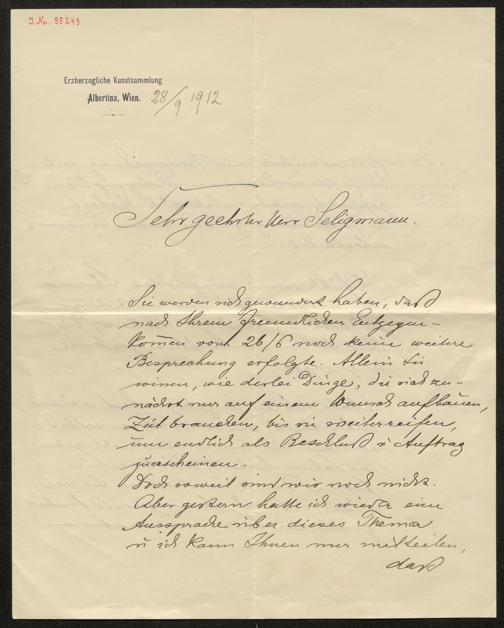 J. No. 95249
Erzherzogliche Kunstsammlung
Albertina, Wien. 28/9 1912
Sehr geehrter Herr Seligmann.
Sie werden sich gewundert haben, daß
nach Ihrem freundlichen Entgegen-
kom̅en vom 26/6 noch keine weitere
Besprechung erfolgte. Allein Sie
wissen, wie derlei Dinge, die sich zu-
nächst nur auf einem Wunsch aufbauen,
Zeit brauchen, bis sie weiterreifen,
um endlich als Beschluß u Auftrag
zu erscheinen.
Doch soweit sind wir noch nicht.
Aber gestern hatte ich wieder eine
Aussprache über dieses Thema
u ich kann Ihnen nur mitteilen,
daß